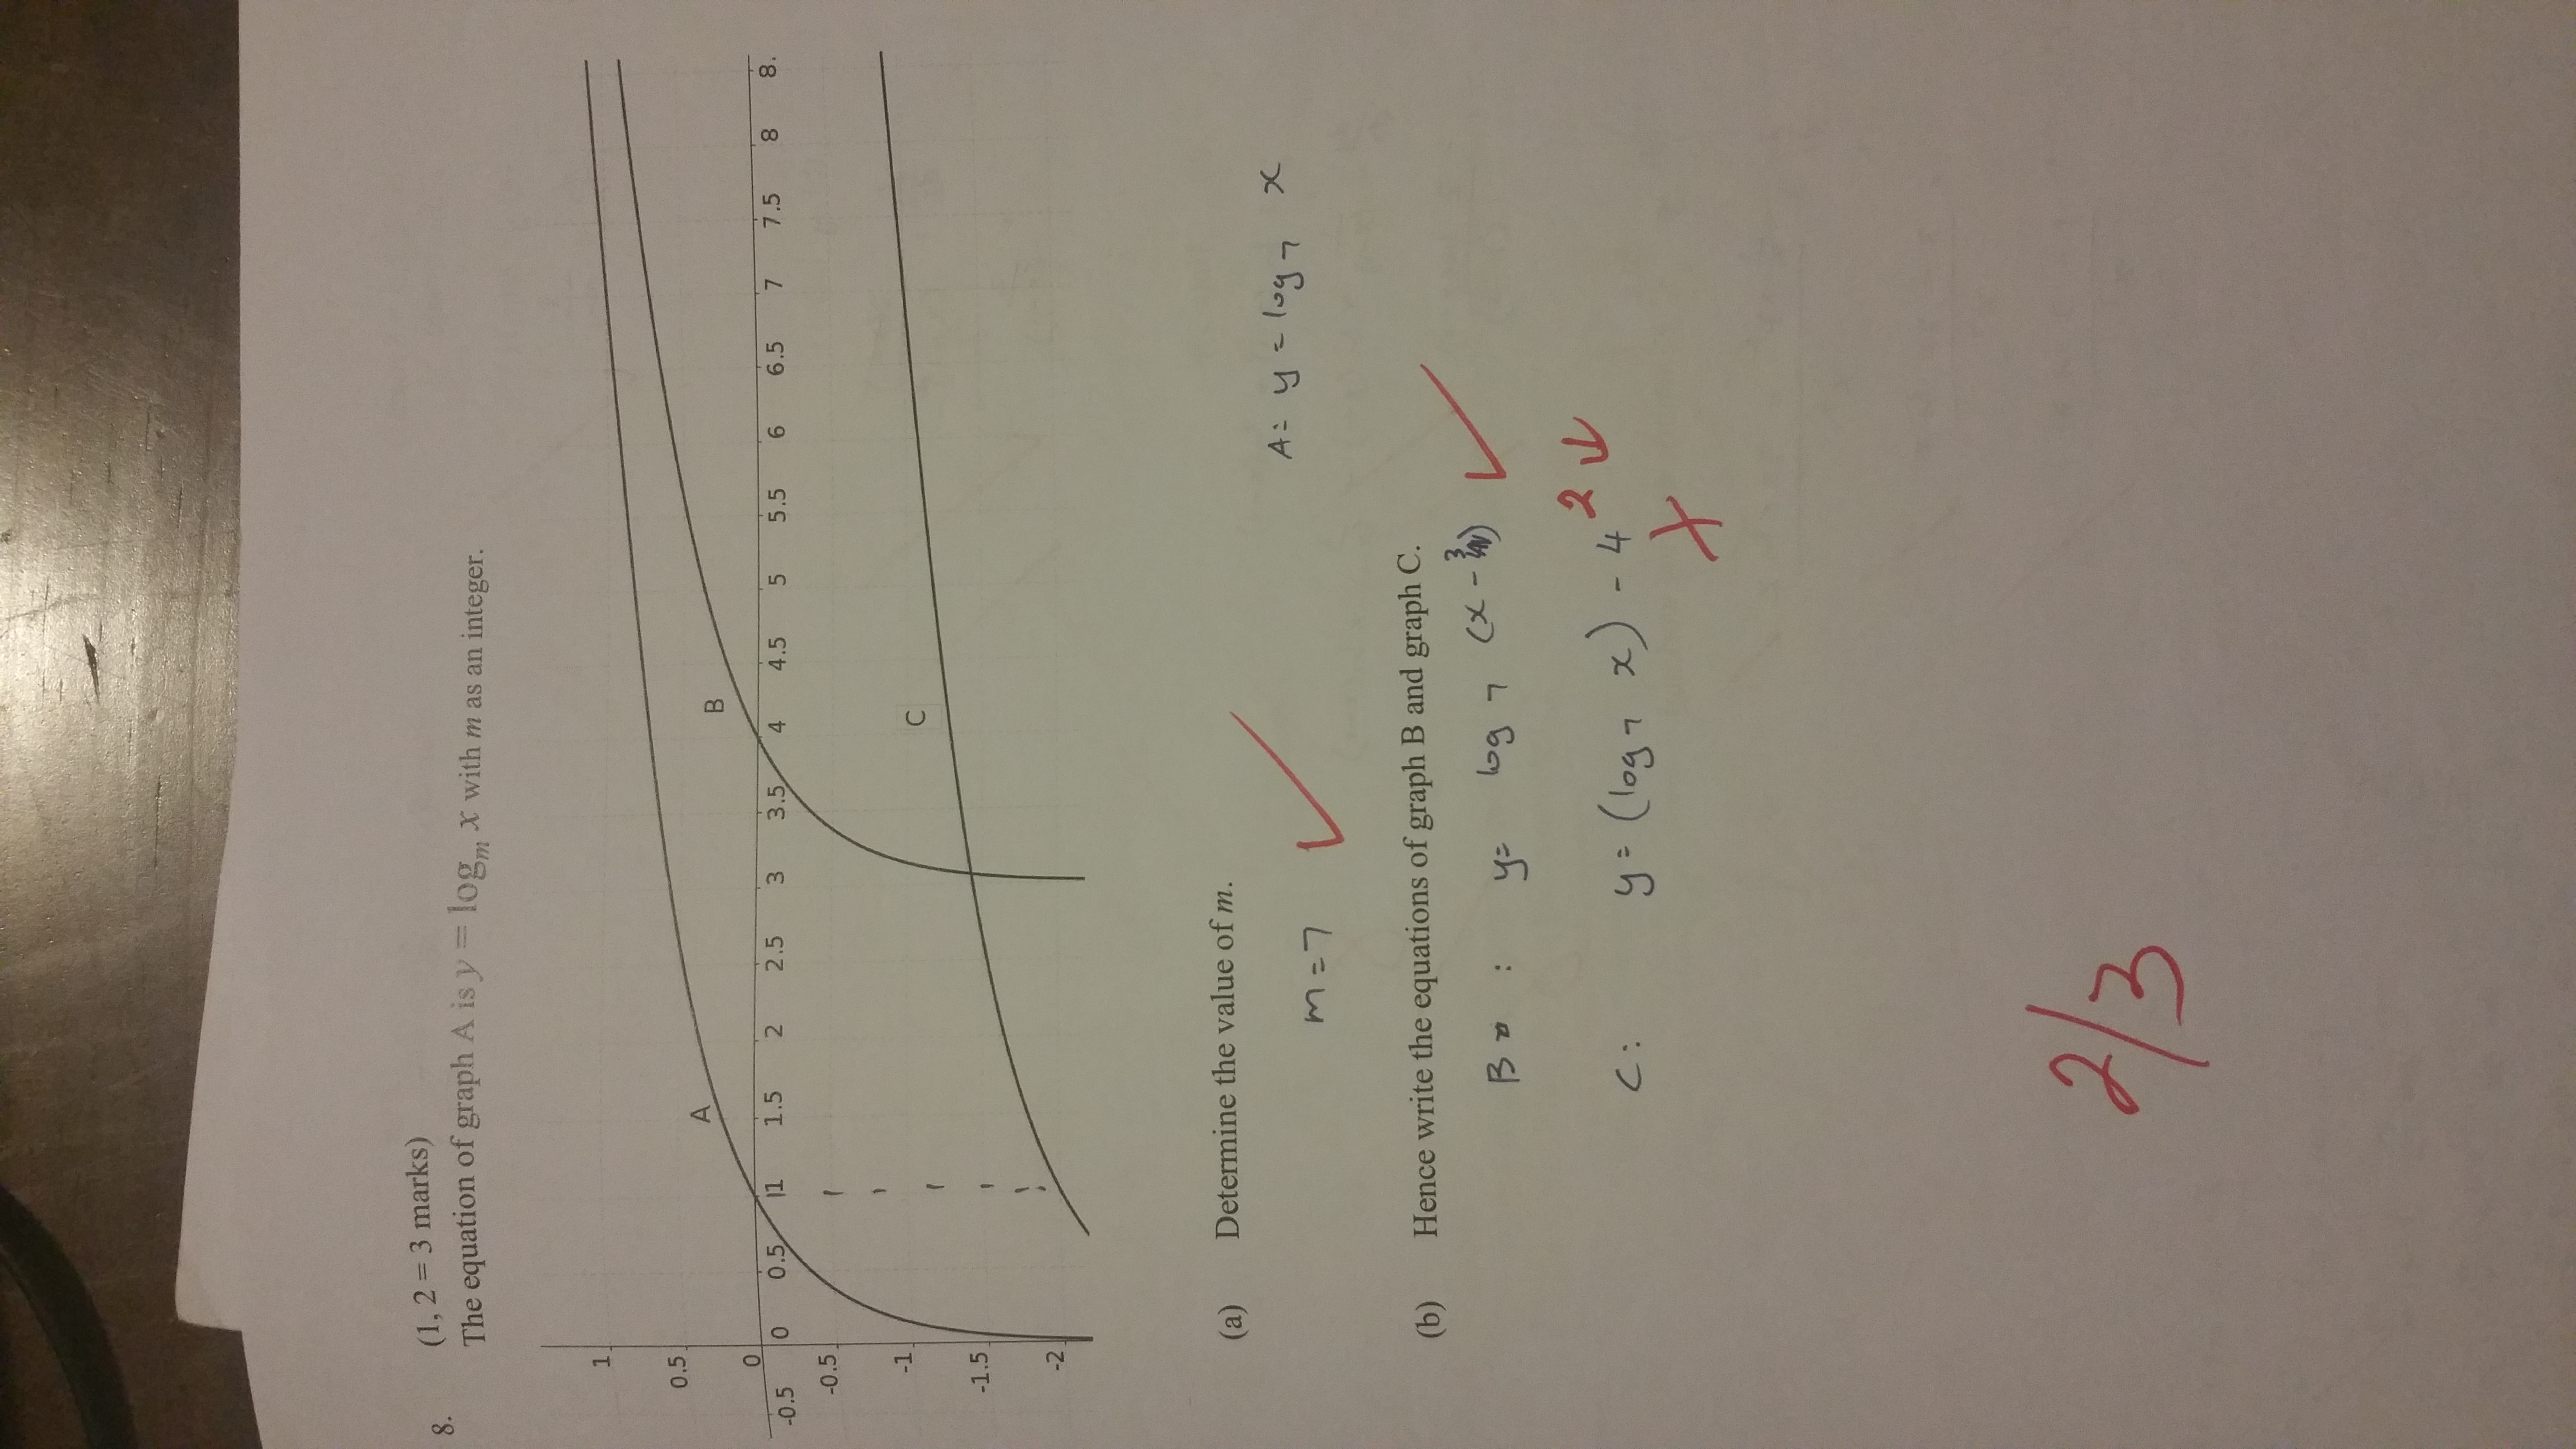 8. (1, 2 = 3 marks)
The equation of graph A is y = logₘ x with m as an integer.
1
0.5
A
B
0
-0.5 0 0.5 1 1.5 2 2.5 3 3.5 4 4.5 5 5.5 6 6.5 7 7.5 8 8.
-0.5
-1
C
-1.5
-2
(a) Determine the value of m.
A: y = log₇ x
m = 7
(b) Hence write the equations of graph B and graph C.
B : y = log₇ (x - 3)
C: y = (log₇ x) - 4 2
2/3